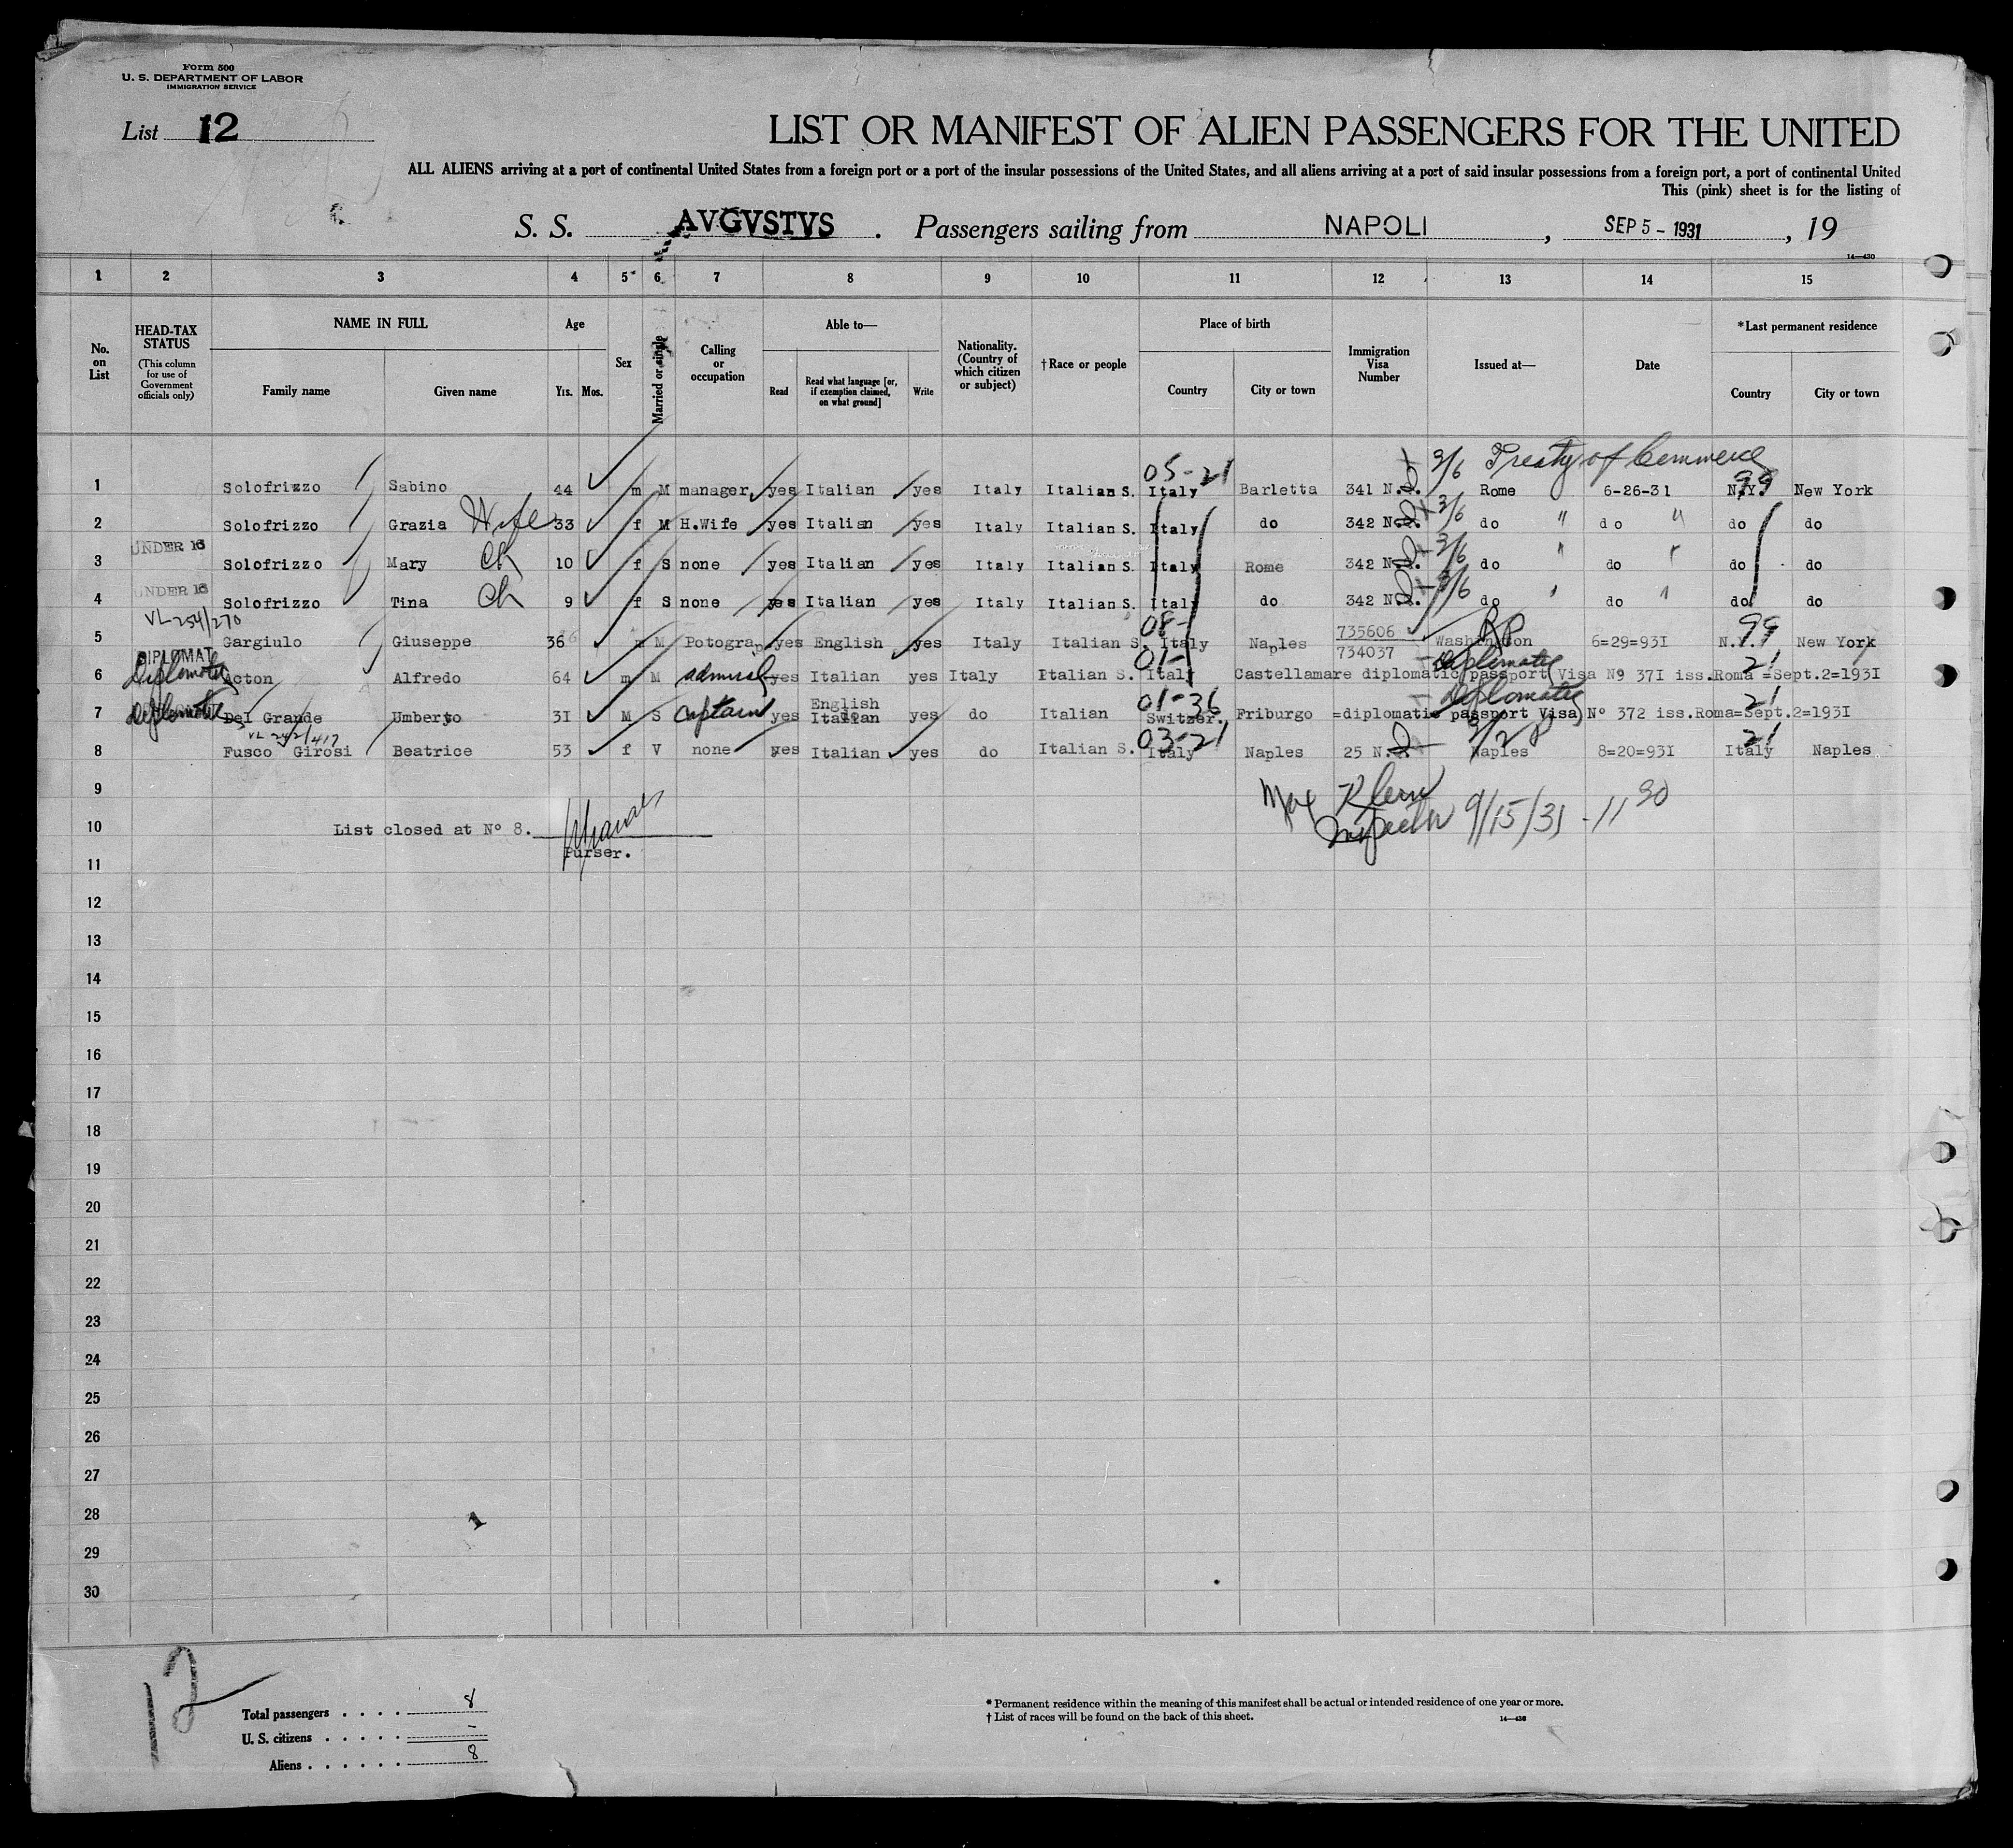 Form 500
U. S. DEPARTMENT OF LABOR
IMMIGRATION SERVICE
List 12
LIST OR MANIFEST OF ALIEN PASSENGERS FOR THE UNITED
ALL ALIENS arriving at a port of continental United States from a foreign port or a port of the insular possessions of the United States, and all aliens arriving at a port of said insular possessions from a foreign port, a port of continental United
This (pink) sheet is for the listing of
S. S. AVGVSTVS . Passengers sailing from NAPOLI , SEP 5 - 1931 , 19
14—430
1 2 3 4 5 6 7 8 9 10 11 12 13 14 15
No. on List
HEAD-TAX STATUS
(This column for use of Government officials only)
NAME IN FULL
Family name Given name
Age
Yrs. Mos.
Sex
Married or single
Calling or occupation
Able to—
Read
Read what language [or, if exemption claimed, on what ground]
Write
Nationality. (Country of which citizen or subject)
†Race or people
Place of birth
Country City or town
Immigration Visa Number
Issued at—
Date
*Last permanent residence
Country City or town
05-21 3/6 Treaty of Commerce 99
1 Solofrizzo Sabino 44 m M manager yes Italian yes Italy Italian S. Italy Barletta 341 N. Rome 6-26-31 N.Y. New York
2 Solofrizzo Grazia Wife 33 f M H.Wife yes Italian yes Italy Italian S. Italy do 342 N. 3/6 do " do " do do
UNDER 16
3 Solofrizzo Mary Ch 10 f S none yes Italian yes Italy Italian S. Italy Rome 342 N. 3/6 do " do " do do
UNDER 16
4 Solofrizzo Tina Ch 9 f S none yes Italian yes Italy Italian S. Italy do 342 N. 3/6 do " do " do do
VL 254/270 08- RP 99
5 Gargiulo Giuseppe 36 m M Potograp yes English yes Italy Italian S. Italy Naples 735606 734037 Washington 6=29=931 N.Y. New York
DIPLOMAT 01- Diplomatic 21
6 Diplomatic Acton Alfredo 64 m M admiral yes Italian yes Italy Italian S. Italy Castellamare diplomatic passport Visa Nº 371 iss.Roma =Sept.2=1931
English 01-36 Diplomatic 21
7 Diplomatic Del Grande Umberto 31 M S Captain yes Italian yes do Italian Switzer. Friburgo =diplomatic passport Visa Nº 372 iss.Roma=Sept.2=1931
VL 242/417 03-21 21
8 Fusco Girosi Beatrice 53 f V none yes Italian yes do Italian S. Italy Naples 25 N. Naples 8=20=931 Italy Naples
9
Max Klein
10 List closed at Nº 8. Inspector 9/15/31 - 11 30
Purser.
11
12
13
14
15
16
17
18
19
20
21
22
23
24
25
26
27
28 1
29
30
12
Total passengers . . . . 8
U. S. citizens . . . . . -
Aliens . . . . . . 8
* Permanent residence within the meaning of this manifest shall be actual or intended residence of one year or more.
† List of races will be found on the back of this sheet.
14—430